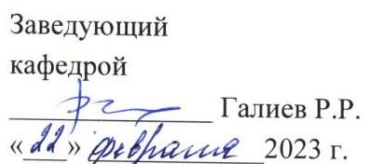 Заведующий
кафедрой
Галиев Р.Р.
«22» февраля 2023 г.